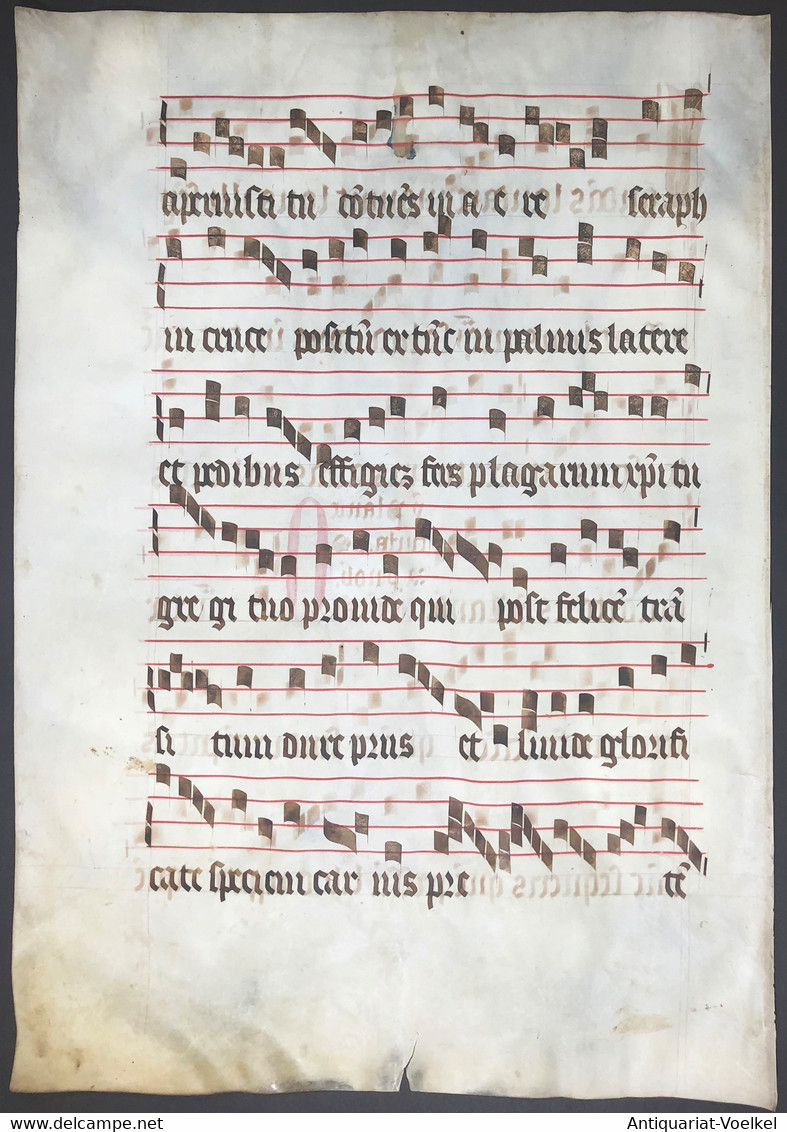 aperuisti tu cōtuēs in a e re seraph
in cruce positū ex tūc in palmis latere
et pedibus effigiez fers plagarum xp̄i tu
gre gi tuo prouide qui post felicē trā
si tum dure prius et liuide glorifi
cate speciem car nis pre tē
Antiquariat-Voelkel.com